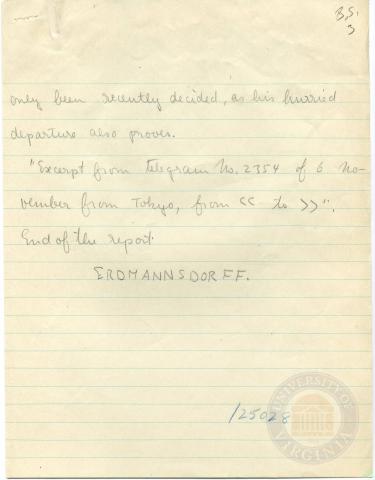 B.S.
3
only been recently decided, as his hurried
departure also proves.
"Excerpt from telegram No. 2354 of 6 No-
vember from Tokyo, from << to >>".
End of the report.
ERDMANNSDORFF.
125028
UNIVERSITY OF VIRGINIA